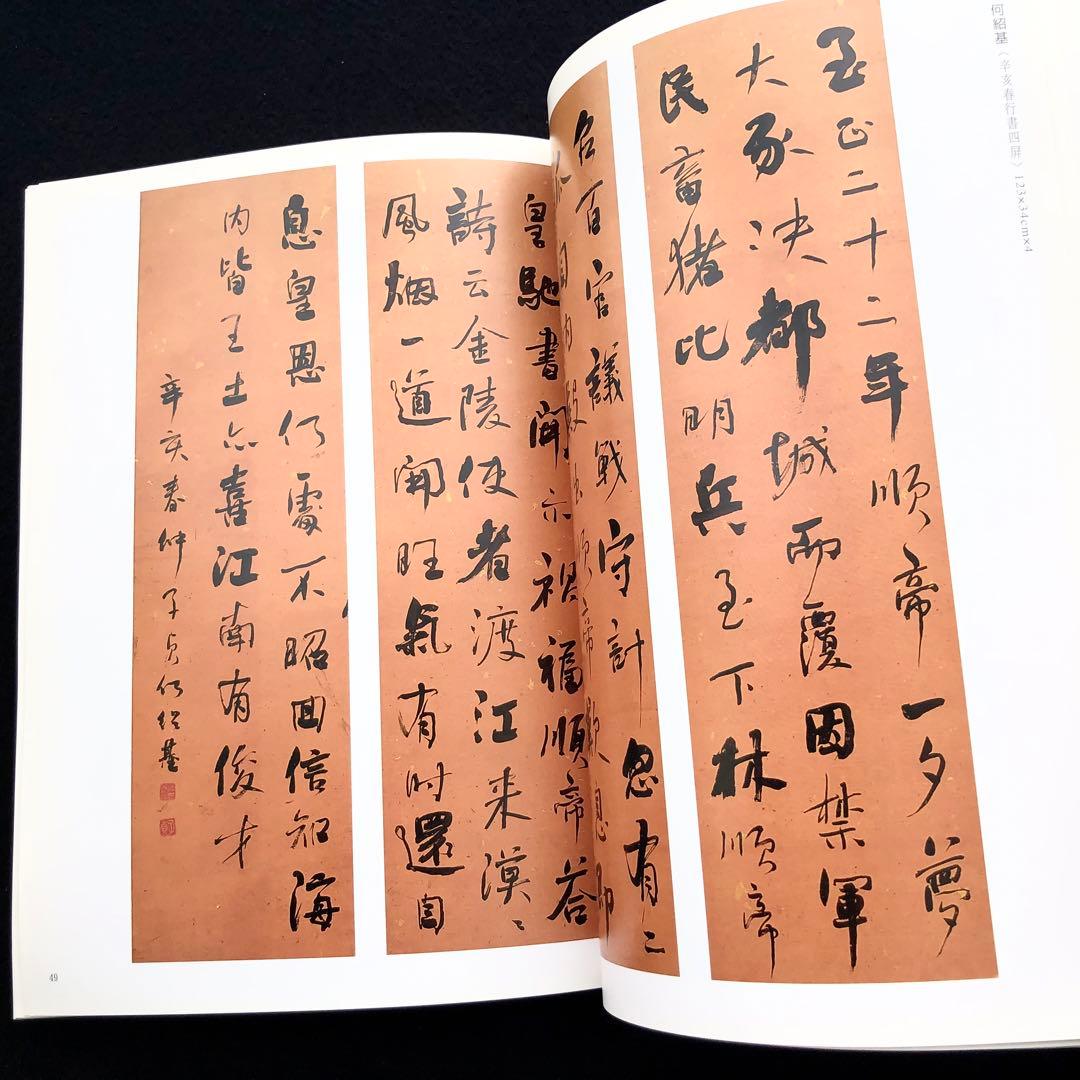 何紹基《辛亥春行書四屏》123×34cm×4
至正二十二年順帝一夕夢
大豕決都城而覆因禁軍
民畜猪比明兵至下林順帝
召百官議戰守計忽有二
皇馳書闻示禍福順帝答
詩云金陵使者渡江来漠〻
風烟一道開旺氣有时還自
息皇恩何處不昭回信知海
内皆王土亦喜江南有俊才
辛亥春仲子貞何紹基
49